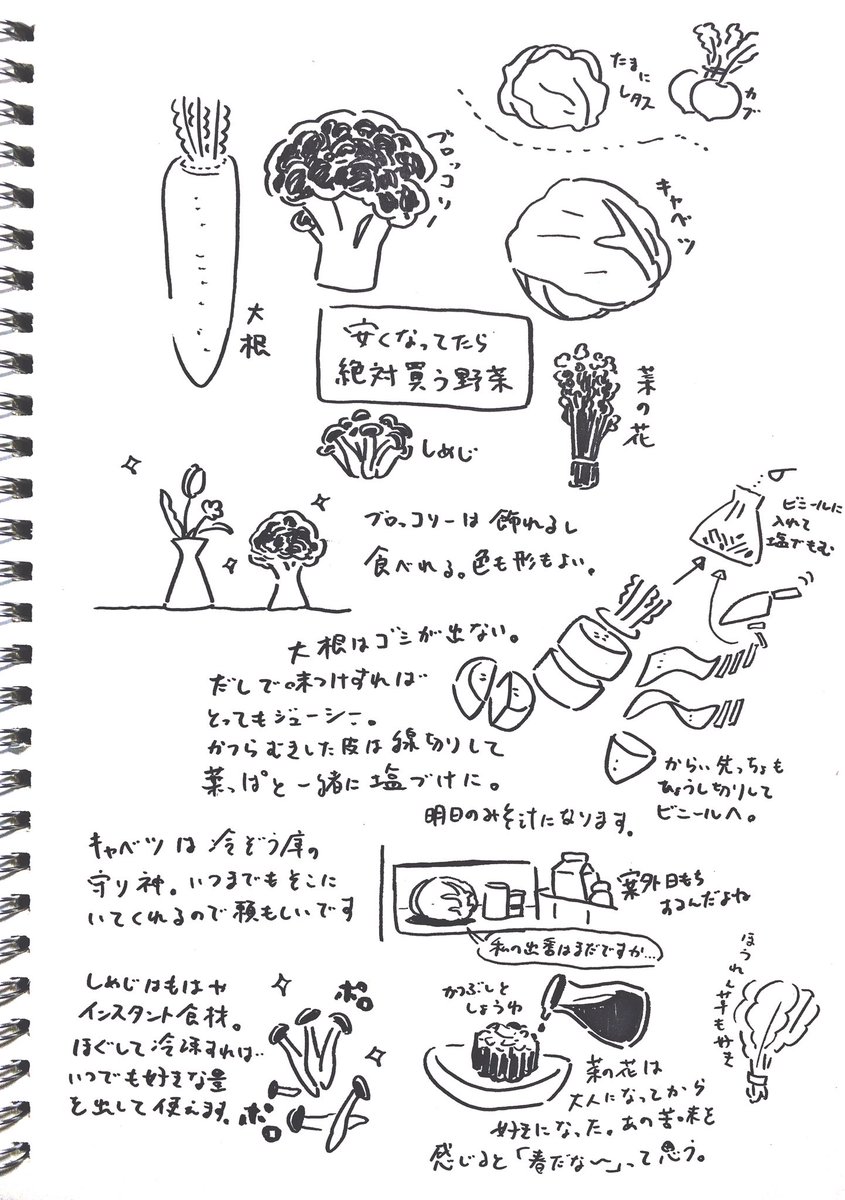 たまに
レタス
カブ
ブロッコリー
キャベツ
大根
安くなってたら
絶対買う野菜
菜の花
しめじ
ブロッコリーは飾れるし
食べれる。色も形もよい。
ビニールに
入れて
塩でもむ
大根はゴミが出ない。
だしで味つけすれば
とってもジューシー。
かつらむきした皮は線切りして
葉っぱと一緒に塩づけに。
からい先っちょも
ひょうし切りして
ビニールへ。
明日のみそ汁になります。
キャベツは冷ぞう庫の
守り神。いつまでもそこに
いてくれるので頼もしいです
案外日もち
するんだよね
私の出番はまだですか…
しめじはもはや
インスタント食材。
ほぐして冷凍すれば
いつでも好きな量
を出して使えます。
ポロ
ポロ
かつぶしと
しょうゆ
ほうれん草も好き
菜の花は
大人になってから
好きになった。あの苦味を
感じると「春だな〜」って思う。